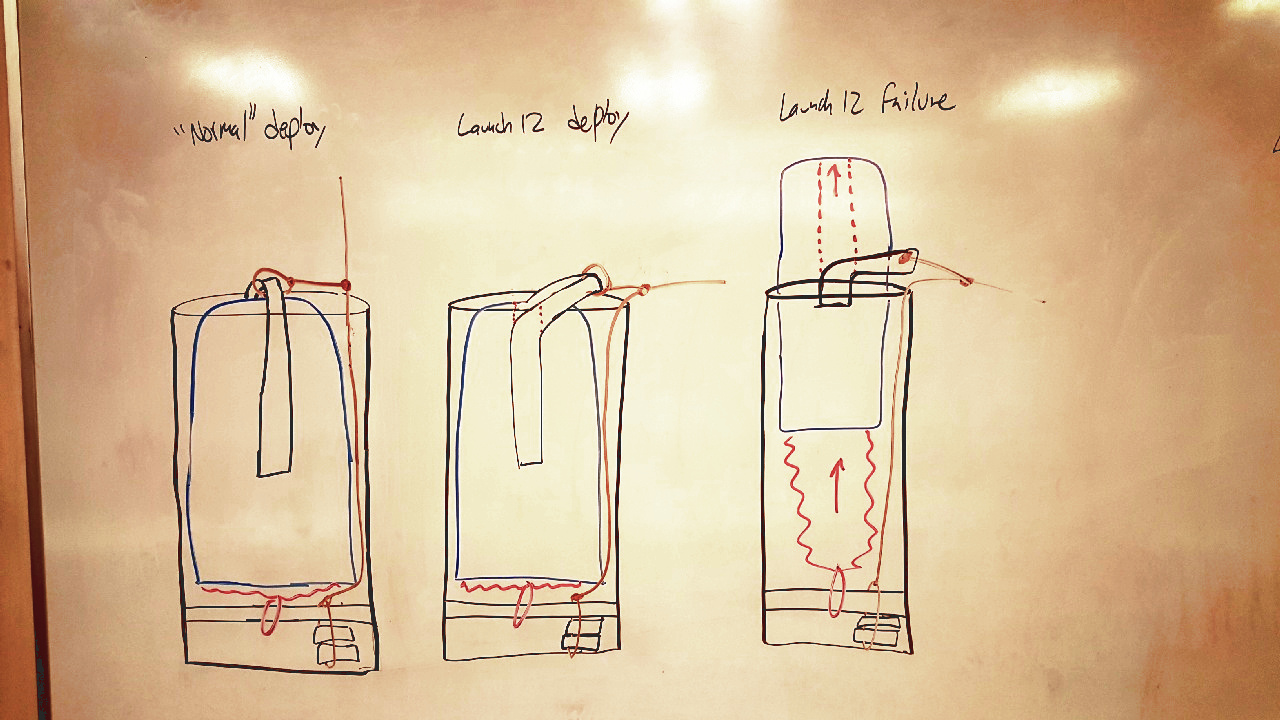 "Normal" deploy
Launch 12 deploy
Launch 12 Failure